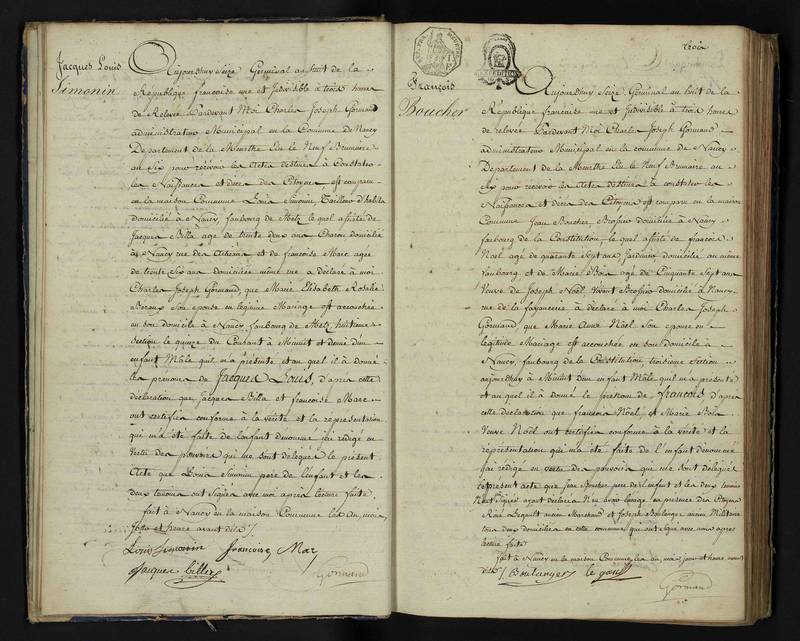 Jacques Louis
Simonin
Aujourdhuy Seize Germinal an huit de la
République françoise une et Indivisible à trois heures
de Relevée Pardevant Moi Charles Joseph Gormand
administrateur Municipal en la Commune de Nancy
Département de la Meurthe Elu le Neuf Brumaire
an Six pour recevoir les Actes destinés à Constater
les Naissances et décès des Citoyens est comparu
en la maison Commune Louis Simonin, Tailleur d'habits
domicilié à Nancy, faubourg de Metz lequel assisté de
Jacques Billa age de trente deux ans Charon domicilié
à Nancy rue des Artisans et de francoise Marc agee
de trente Six ans domiciliée même rue a déclaré à moi
Charles Joseph Gormand, que Marie Elisabeth Rosalie
son épouse en légitime Mariage est accouchée
en son domicile à Nancy faubourg de Metz, huitieme
Section le quinze du Courant à Minuit et demi d'un
enfant Mâle qu'il m'a présenté et auquel il a donné
les prénoms de Jacques Louis, d'après cette
déclaration que Jacques Billa et françoise Marc
ont certifiés conforme à la vérité et la représentation
qui m'a été faite de l'enfant dénommé j'ai rédigé en
vertu des pouvoirs qui me sont délégués le présent
Acte que Louis Simonin pere de l'enfant et les
deux témoins ont signés avec moi après lecture faite
fait à Nancy en la maison Commune les an, mois,
jour et heure avant dits
Louis Simonin francoise Marc
Jacques billa Gormand
trois
François
Boucher
Aujourdhuy Seize Germinal an huit de la
République francoise une et Indivisible à trois heures
de relevée Pardevant Moi Charles Joseph Gormand
administrateur Municipal en la commune de Nancy
Département de la Meurthe Elu le Neuf Brumaire an
Six pour recevoir les Actes destinés à constater les
Naissances et décès des Citoyens est comparu en la maison
Commune Jean Boucher Brossier domicilié à Nancy
faubourg de la Constitution, lequel assisté de francois
Noël age de quarante Sept ans Jardinier domicilié au même
faubourg et de Marie Bois age de Cinquante Sept ans
Veuve de Joseph Noël vivant Brossier domiciliée à Nancy
rue de la fayancerie a déclaré à moi Charles Joseph
Gormand que Marie Anne Noël son épouse en
légitime Mariage est accouchée en son domicile à
Nancy, faubourg de la Constitution troisieme Section
aujourdhuy à Minuit d'un enfant Mâle qu'il m'a présenté
et auquel il à donné le prénom de francois d'après
cette déclaration que francois Noël et Marie Bois
Veuve Noël ont certifiés conforme à la vérité et la
représentation qui m'a été faite de l'enfant dénommé
j'ai rédigé en vertu des pouvoirs qui me sont délégués
le présent acte que Jean Boucher pere de l'enfant et les deux témoins
n'ont signés ayant déclarés en présence des Citoyens
Legault ancien Marchand et Joseph Boulanger ancien Militaire
tous deux domiciliés en cette commune qui ont signé avec moi après
lecture faite
fait à Nancy en la maison Commune les an, mois, jour et heure avant
dits Boulanger le gault
Gormand